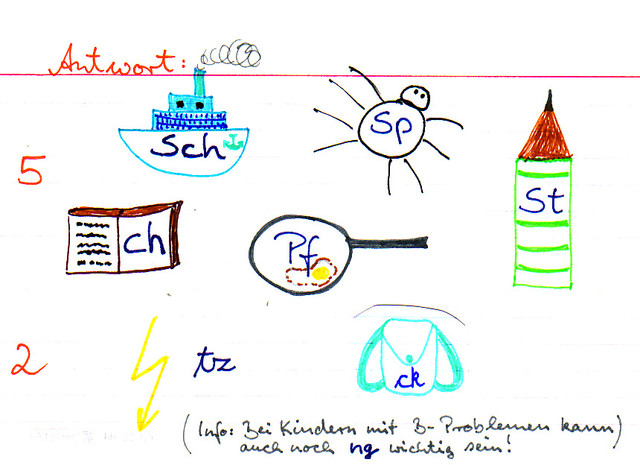 Antwort:
Sch
Sp
5
St
ch
Pf
2
tz
ck
(Info: Bei Kindern mit B-Problemen kann)
auch noch ng wichtig sein!